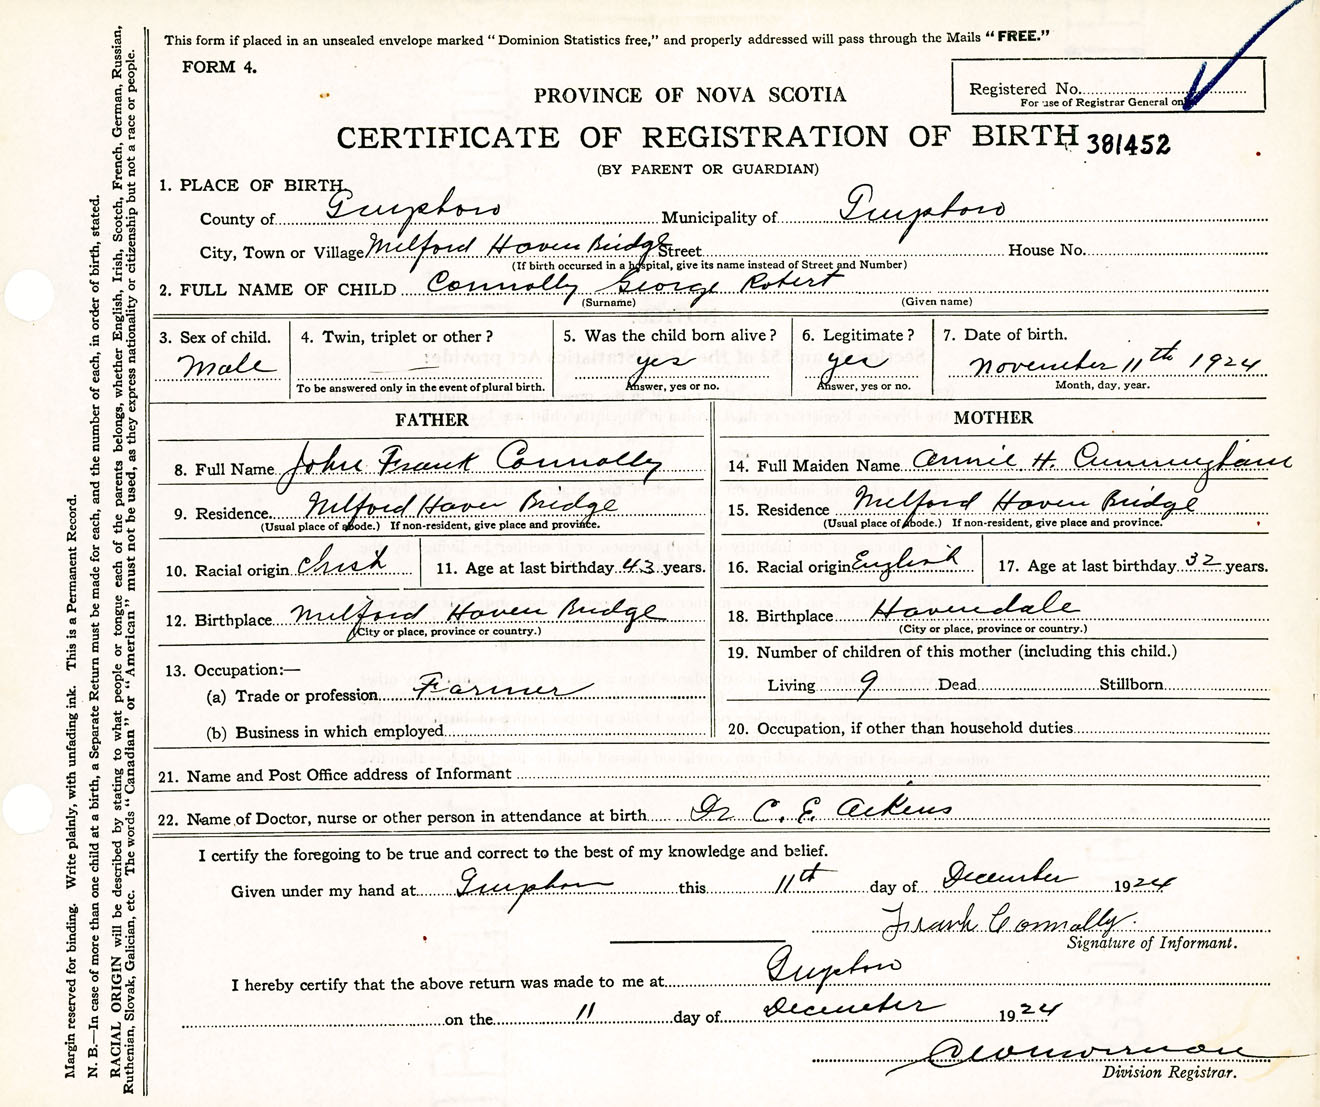 This form if placed in an unsealed envelope marked "Dominion Statistics free," and properly addressed will pass through the Mails "FREE."
FORM 4.
Registered No.
For use of Registrar General only
PROVINCE OF NOVA SCOTIA
CERTIFICATE OF REGISTRATION OF BIRTH 381452
(BY PARENT OR GUARDIAN)
1. PLACE OF BIRTH
County of Guysboro Municipality of Guysboro
City, Town or Village Milford Haven Bridge Street House No.
(If birth occurred in a hospital, give its name instead of Street and Number)
2. FULL NAME OF CHILD Connolly George Robert
(Surname) (Given name)
3. Sex of child. 4. Twin, triplet or other? 5. Was the child born alive? 6. Legitimate? 7. Date of birth.
Male — yes yes November 11th 1924
To be answered only in the event of plural birth. Answer, yes or no. Answer, yes or no. Month, day, year.
FATHER
8. Full Name John Frank Connolly
9. Residence. Milford Haven Bridge
(Usual place of abode.) If non-resident, give place and province.
10. Racial origin Irish 11. Age at last birthday 43 years.
12. Birthplace Milford Haven Bridge
(City or place, province or country.)
13. Occupation:—
(a) Trade or profession Farmer
(b) Business in which employed
MOTHER
14. Full Maiden Name Annie H. Cunningham
15. Residence Milford Haven Bridge
(Usual place of abode.) If non-resident, give place and province.
16. Racial origin English 17. Age at last birthday 32 years.
18. Birthplace Havendale
(City or place, province or country.)
19. Number of children of this mother (including this child.)
Living 9 Dead Stillborn
20. Occupation, if other than household duties
21. Name and Post Office address of Informant
22. Name of Doctor, nurse or other person in attendance at birth Dr C. E. Aikens
I certify the foregoing to be true and correct to the best of my knowledge and belief.
Given under my hand at Guysboro this 11th day of December 1924
Frank Connolly
Signature of Informant.
I hereby certify that the above return was made to me at Guysboro
on the 11 day of December 1924
Division Registrar.
Margin reserved for binding. Write plainly, with unfading ink. This is a Permanent Record.
N. B.—In case of more than one child at a birth, a Separate Return must be made for each, and the number of each, in order of birth, stated.
RACIAL ORIGIN will be described by stating to what people or tongue each of the parents belongs, whether English, Irish, Scotch, French, German, Russian,
Ruthenian, Slovak, Galician, etc. The words "Canadian" or "American" must not be used, as they express nationality or citizenship but not a race or people.